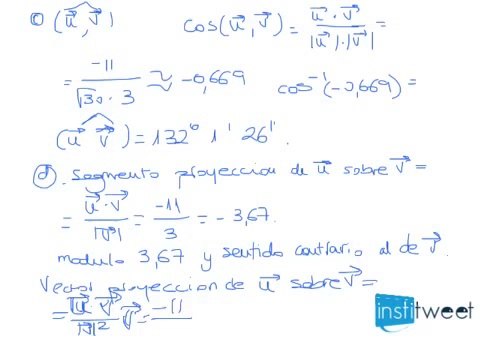 c) (u⃗, v⃗) cos(u⃗, v⃗) = u⃗ · v⃗ / |u⃗| · |v⃗| =
= -11 / √30 · 3 ≈ -0,669 cos⁻¹(-0,669) =
(u⃗ v⃗) = 132° 1' 26''.
d). Segmento proyeccion de u⃗ sobre v⃗ =
= u⃗ · v⃗ / |v⃗| = -11 / 3 = - 3,67.
modulo 3,67 y sentido contrario al de v⃗.
Vector proyeccion de u⃗ sobre v⃗ =
= u⃗ · v⃗ / |v⃗|² v⃗ = -11
institweet